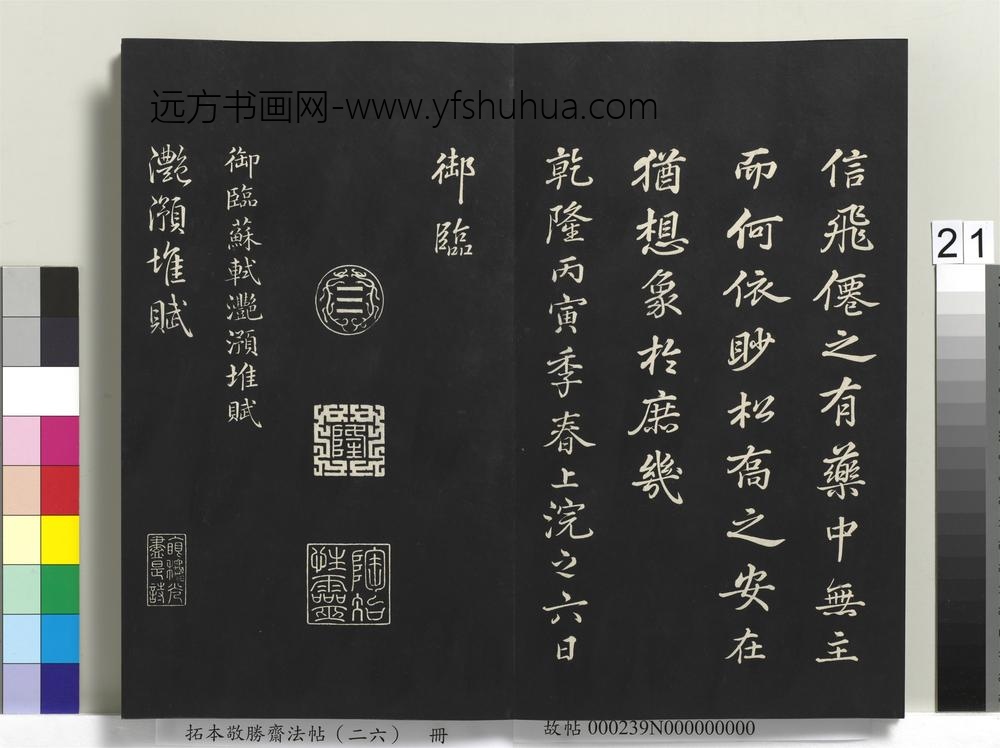 远方书画网-www.yfshuhua.com
信飛僊之有藥中無主
而何依眇松高之安在
猶想象於庶幾
乾隆丙寅季春上浣之六日
御臨
三
乾隆
陶冶性靈
御臨蘇軾灩澦堆賦
灩澦堆賦
21
拓本敬勝齋法帖（二六） 冊
故帖 000239N000000000